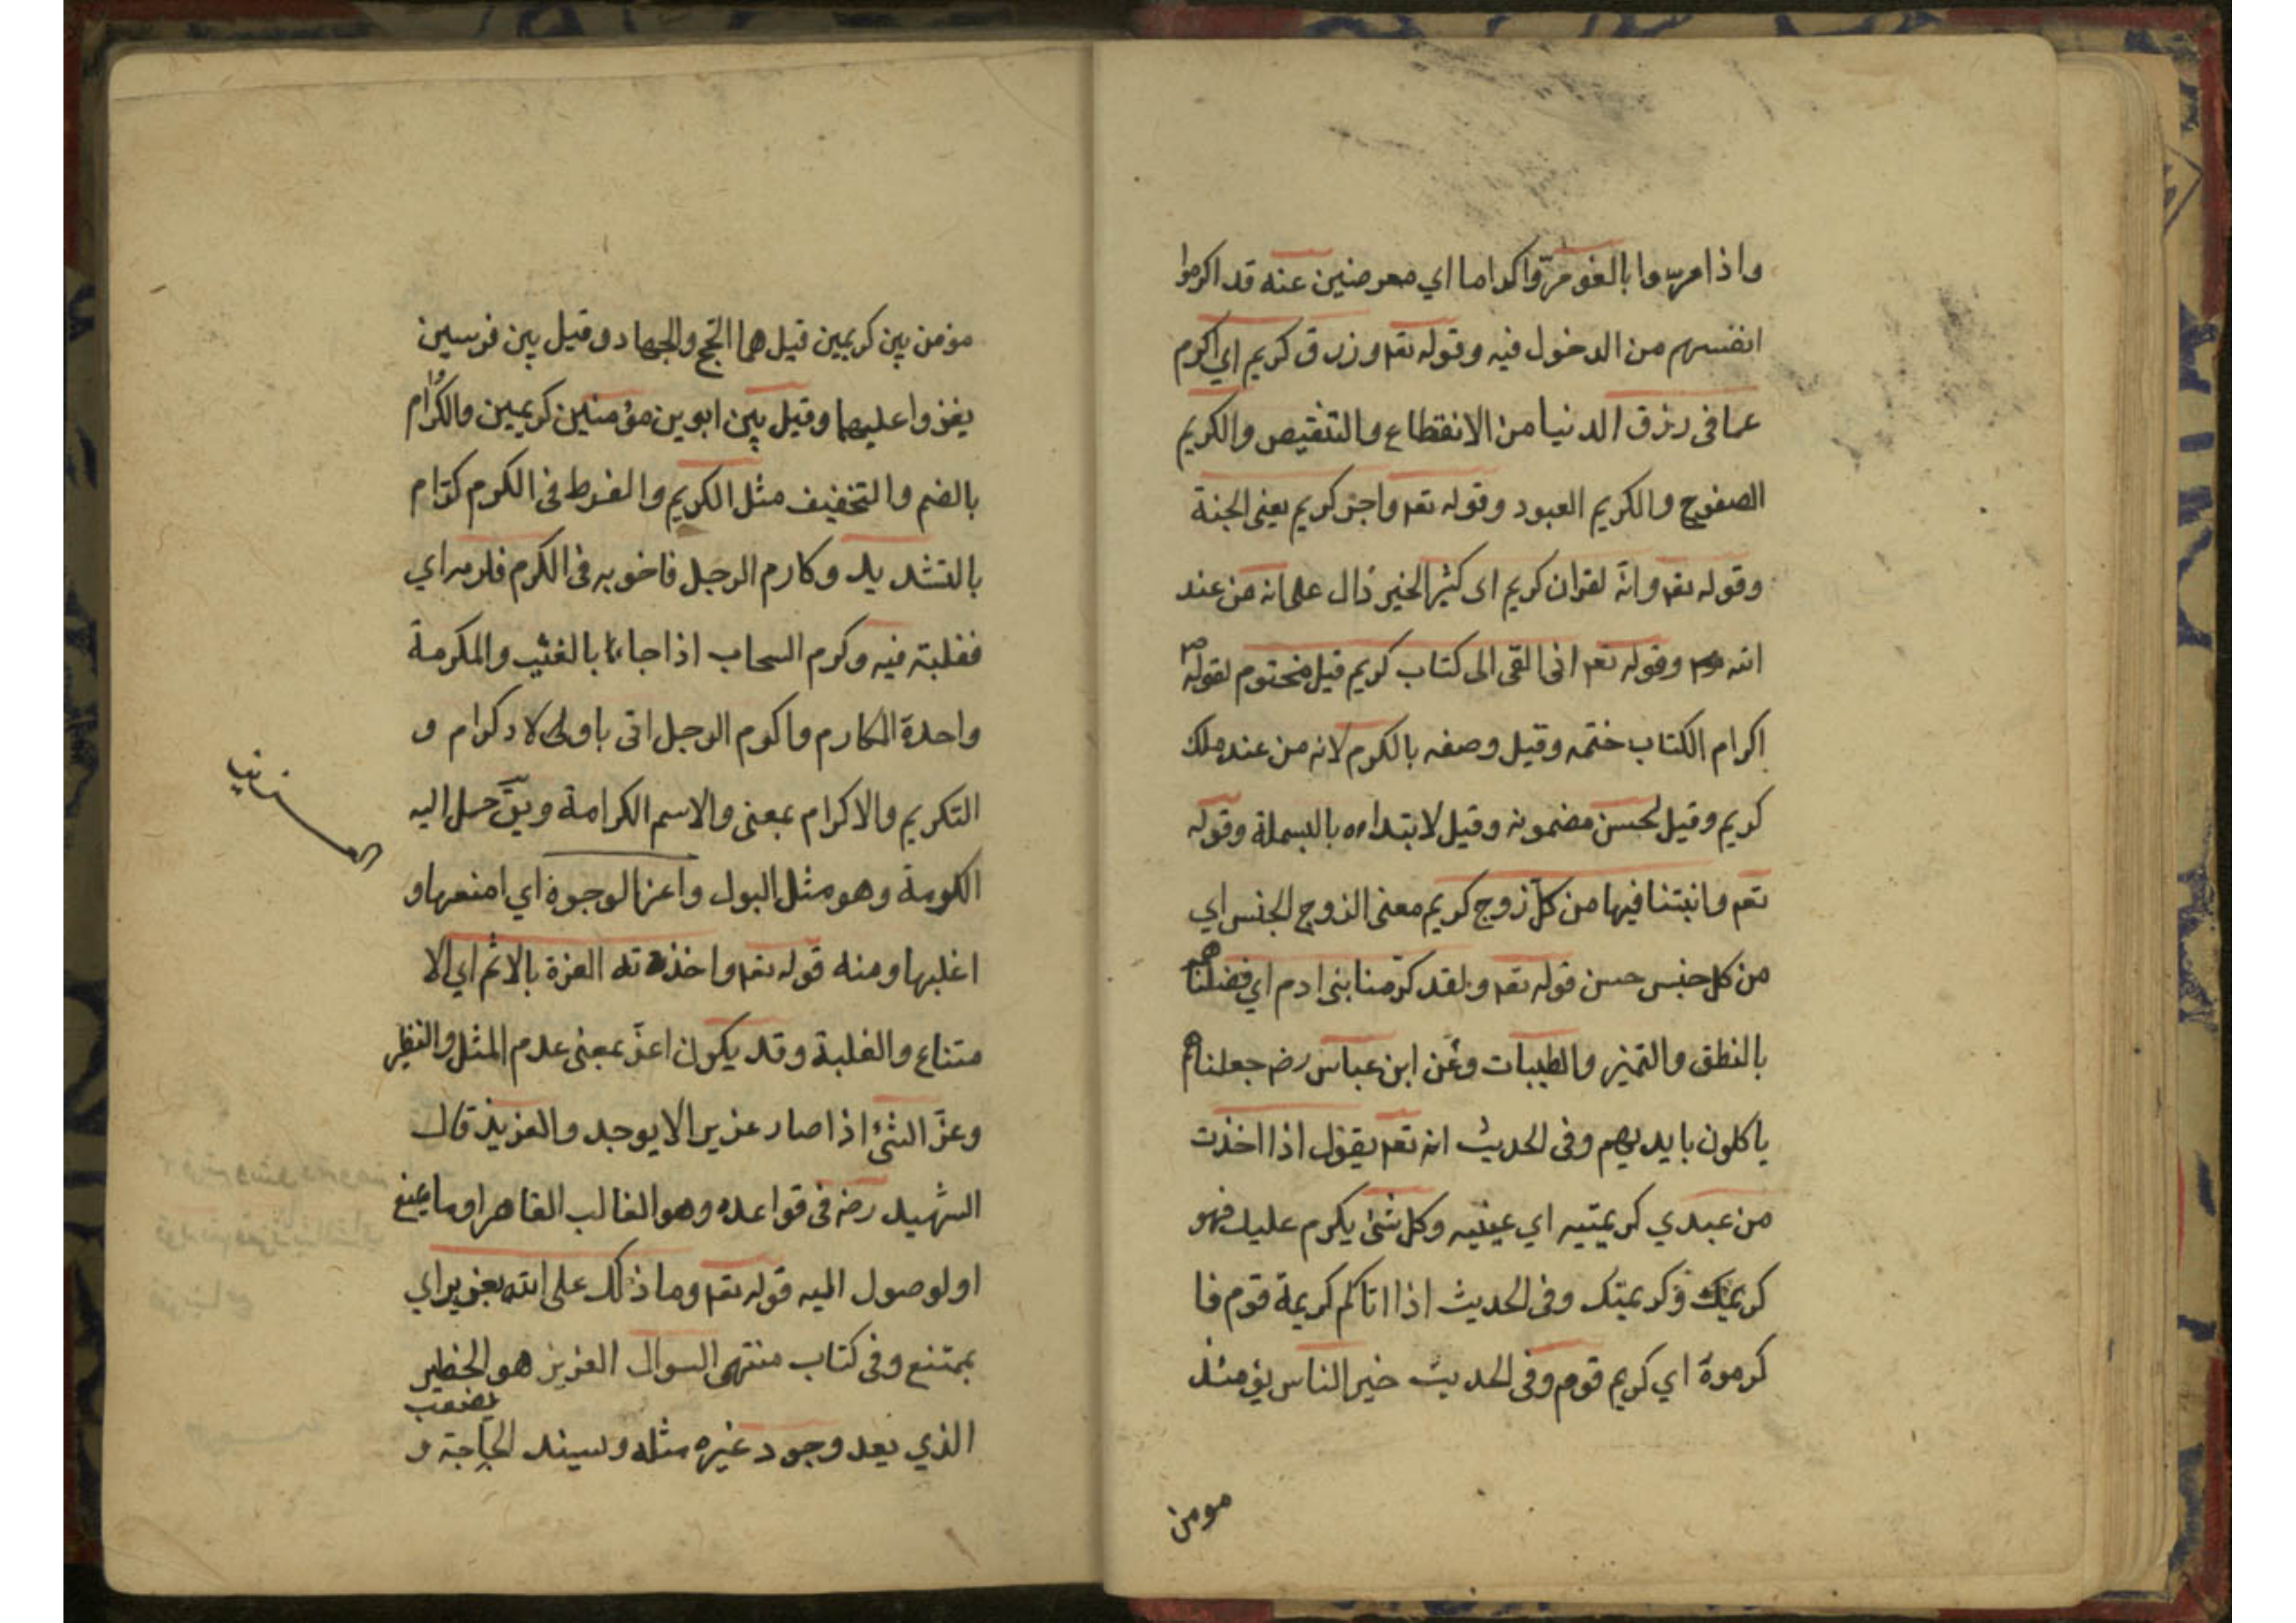 واذا مروا بالغو مرّوا كراما اي معرضين عنه قد اكرموا
انفسهم من الدخول فيه وقوله تعم ورزق كريم اي اكرم
عما فى رزق الدنيا من الانقطاع والتنقيص والكريم
الصفوح والكريم العبود وقوله تعم واجر كريم يعنى الجنة
وقوله تعم وانّه لقران كريم اى كثير الخير دال على انه من عند
الله وقوله تعم انى القى الى كتاب كريم قيل مختوم لقوله ص
اكرام الكتاب ختمه وقيل وصفه بالكرم لانه من عند ملك
كريم وقيل لحسن مضمونه وقيل لابتداءه بالبسملة وقوله
تعم وانبتنا فيها من كلّ زوج كريم معنى الزوج الجنس اي
من كل جنس حسن قوله تعم ولقد كرّمنا بنى ادم اي فضلناهم
بالنطق والتميز والطيبات وعن ابن عباس رضه جعلناهم
ياكلون بايديهم وفى الحديث انه تعم يقول اذا اخذت
من عبدي كريمتيه اي عينيه وكل شئ يكرم عليك فهو
كريمك وكريمتك وفى الحديث اذا اتاكم كريمة قوم فا
كرموة اي كريم قوم وفى الحديث خير الناس يومئذ
مومن
مومن بين كريمين قيل هما الحج والجهاد وقيل بين فرسين
يغزوا عليهما وقيل بين ابوين مؤمنين كريمين والكُرام
بالضم والتخفيف مثل الكريم والفرط فى الكرم كرّام
بالتشديد وكارم الرجل فاخر به فى الكرم فلرمه اي
فغلبته فيه وكرم السحاب اذا جاءنا بالغيب والمكرمة
واحدة المكارم واكرم الرجل اتى باولى لاد كرام و
التكريم والاكرام بمعنى والاسم الكرامة ويقّ حمل اليه
العزيز
الكرمة وهو مثل البول واعز الوجوة اي امنعها و
اغلبها ومنه قوله تعم واخذته العزة بالاثم اي الا
متناع والغلبة وقد يكون اعزّ بمعنى عدم المثل والنظير
وعزّ الشئ اذا صار عزيرا لا يوجد والعزيز قال
الشهيد رضه فى قواعده وهو الغالب القاهر او ما يمنع
او لوصول اليه قوله تعم وما ذلك على الله بعزيز اي
بممتنع وفى كتاب منتهى السوال العزيز هو الخطير
الذي يعد وجود غيره مثله وسيند الحاجة و
يصعب